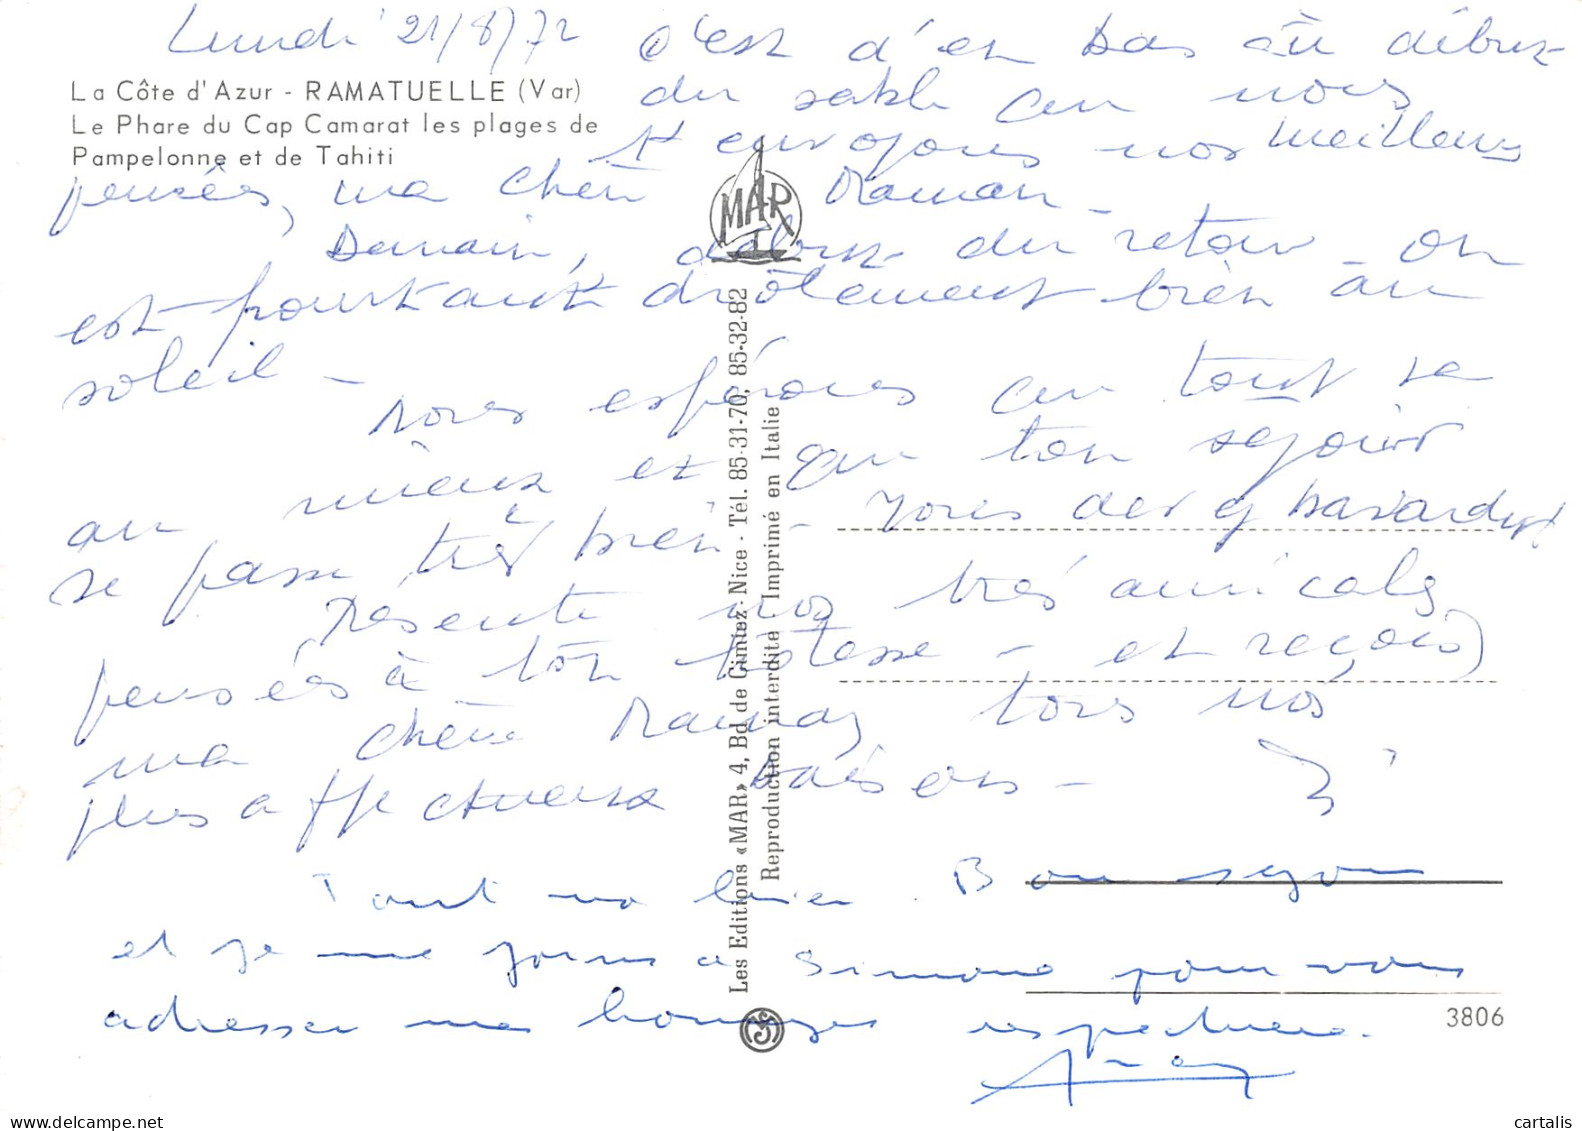 Lundi 21/8/72
La Côte d'Azur - RAMATUELLE (Var)
Le Phare du Cap Camarat les plages de
Pampelonne et de Tahiti
C'est d'en bas où début
du sable que nous
t'envoyons nos meilleures
pensées, ma chère Maman -
Demain, début du retour - on
est pourtant drôlement bien au
soleil -
Nous espérons que tout va
au mieux et que ton séjour
se passe très bien -
Présente nos très amicales
pensées à ton hôtesse - et reçois,
ma chère Maman, tous nos
plus affectueux baisers -
Tout va bien. Bon séjour
et je me joins à Simone pour vous
adresser mes hommages respectueux.
MAR
Les Editions «MAR» 4, Bd de Cimiez - Nice - Tél. 85-31-70, 85-32-82
Reproduction interdite - Imprimé en Italie
3806
cartalis
www.delcampe.net